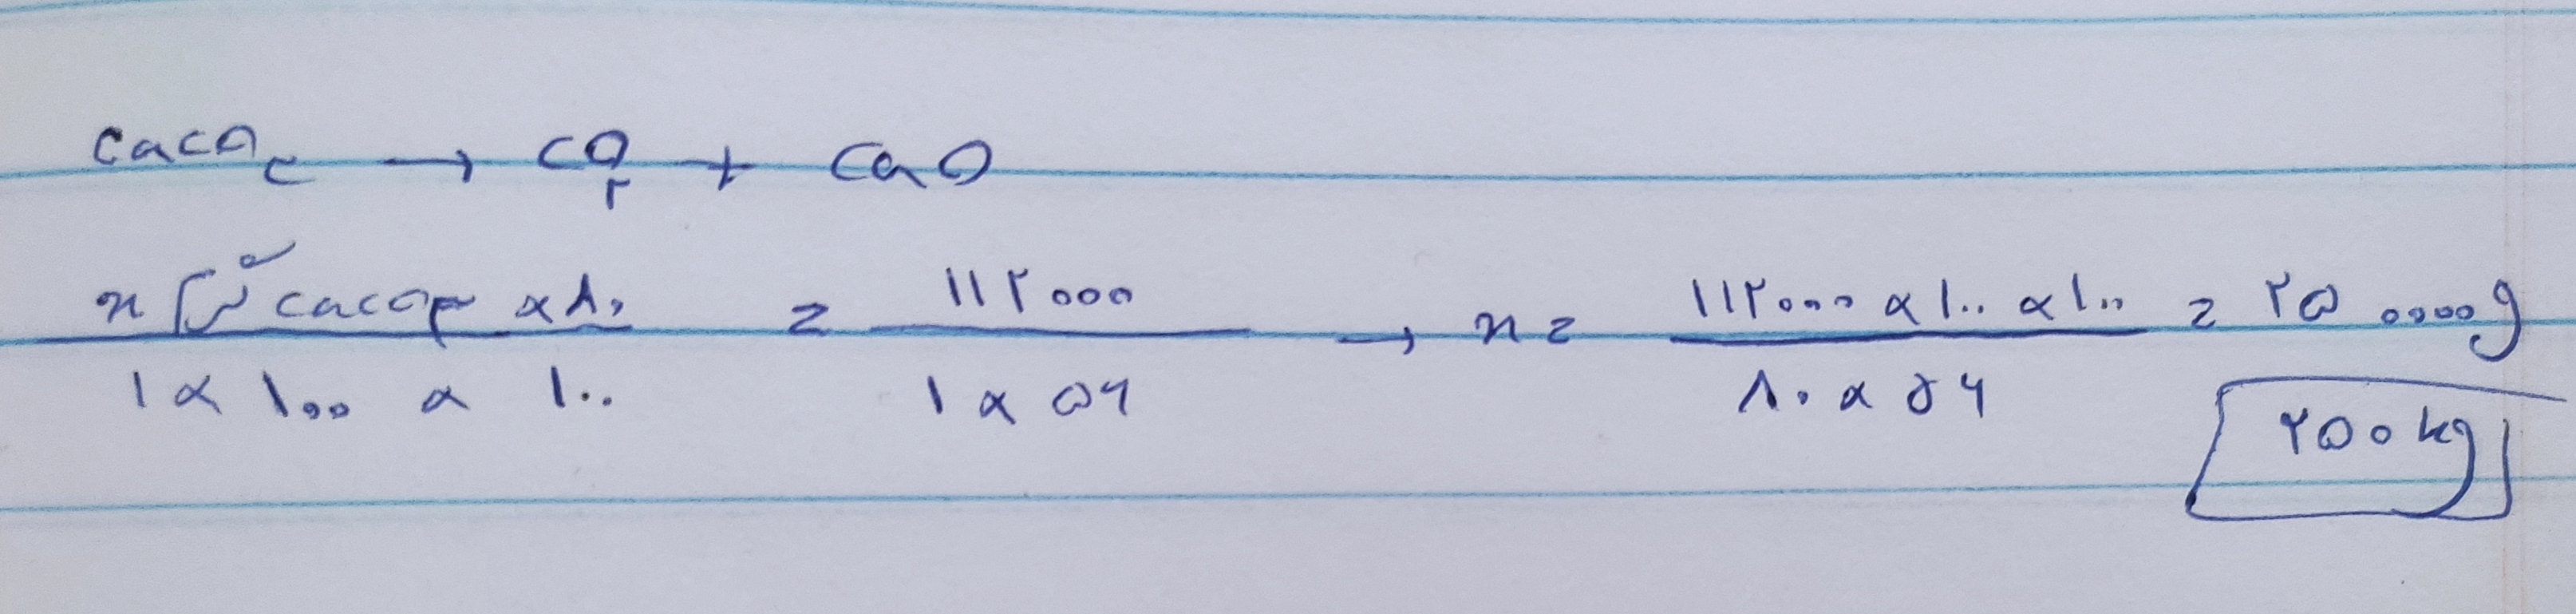 CaCO₃ → CO₂ + CaO
x g CaCO₃ × ۸۰ / ۱ × ۱۰۰ × ۱۰۰ = ۱۱۲۰۰۰ / ۱ × ۵۶ → x = ۱۱۲۰۰۰ × ۱۰۰ × ۱۰۰ / ۸۰ × ۵۶ = ۲۵۰۰۰۰ g
۲۵۰ kg